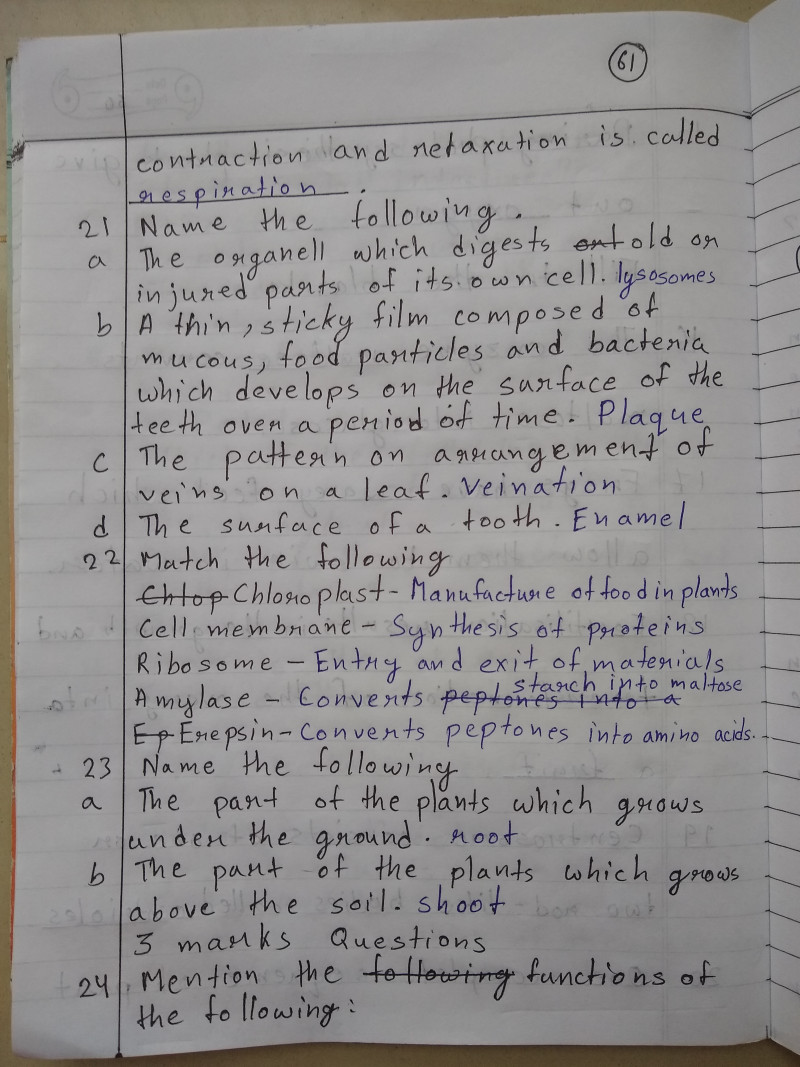 61
contraction and relaxation is called
respiration.
21 Name the following.
a The organell which digests old or
injured parts of its own cell. lysosomes
b A thin, sticky film composed of
mucous, food particles and bacteria
which develops on the surface of the
teeth over a period of time. Plaque
c The pattern on arrangement of
veins on a leaf. Veination
d The surface of a tooth. Enamel
22 Match the following
Chlop Chloroplast - Manufacture of food in plants
Cell membrane - Synthesis of proteins
Ribosome - Entry and exit of materials
starch into maltose
Amylase - Converts peptones into a
Ep Erepsin - Converts peptones into amino acids.
23 Name the following
a The part of the plants which grows
under the ground. root
b The part of the plants which grows
above the soil. shoot
3 marks Questions
24 Mention the following functions of
the following: